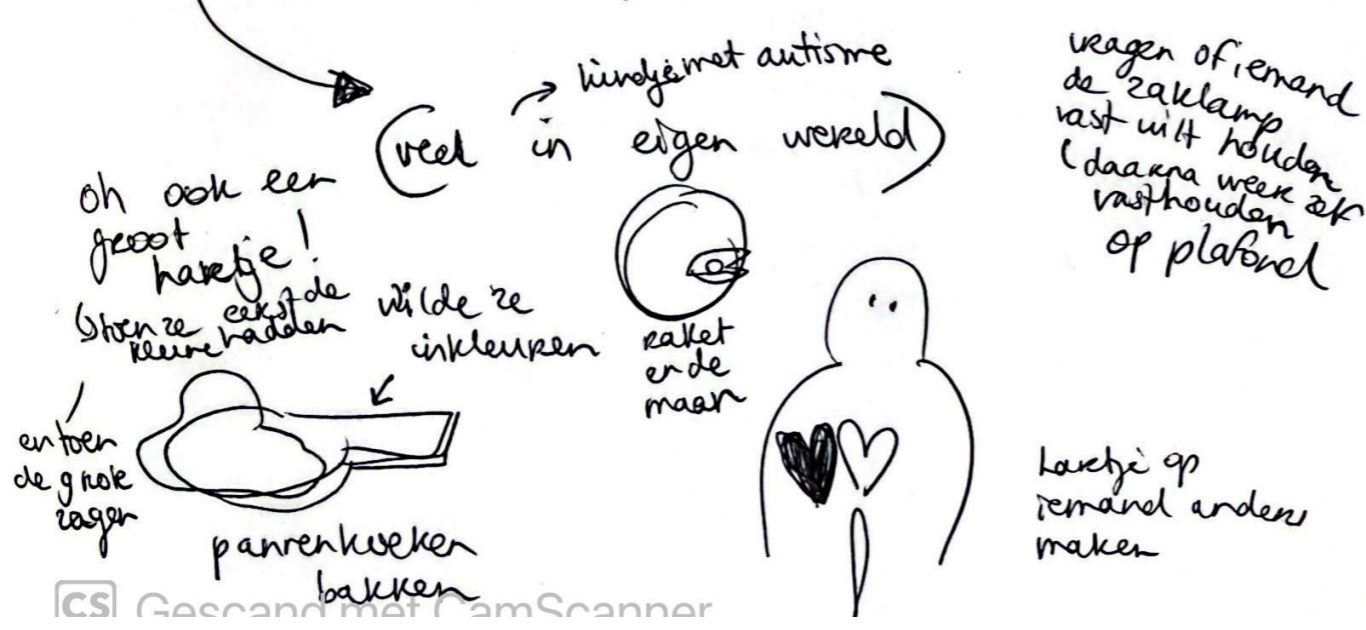 kindje met autisme
(veel in eigen wereld)
vragen of iemand
de zaklamp
vast wilt houden
(daarna weer zelf
vasthouden
op plafond
oh ook een
groot
hartje!
toen ze eerst de
kleine hadden
en toen
de grote
zagen
wilde ze
inkleuren
pannenkoeken
bakken
raket
en de
maan
hartje op
iemand anders
maken
CS Gescand met CamScanner